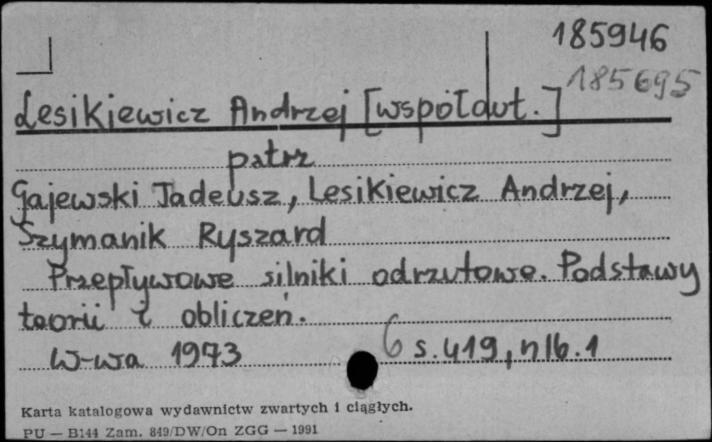 185946
185695
Lesikiewicz Andrzej [współaut.]
patrz
Gajewski Tadeusz, Lesikiewicz Andrzej,
Szymanik Ryszard
Przepływowe silniki odrzutowe. Podstawy
teorii i obliczeń.
W-wa 1973 6 s. 419, nlb. 1
Karta katalogowa wydawnictw zwartych i ciągłych.
PU — B144 Zam. 849/DW/On ZGG — 1991